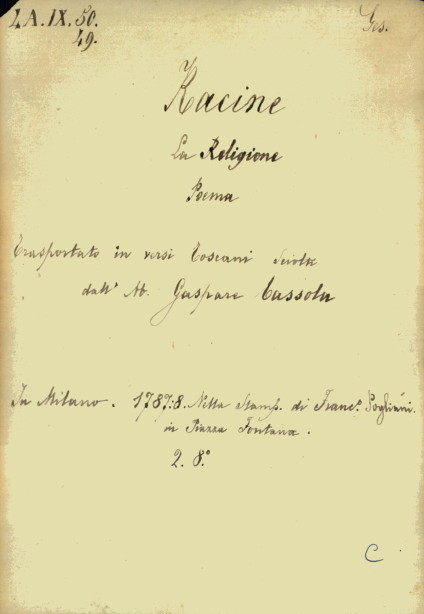 LA.IX.50.
49.
Ges.
Racine
La Religione
Poema
Trasportato in versi Toscani Sciolti
dall' Ab. Gaspare Cassola
In Milano. 1787:8. Nella Stamp. di Franc.º Pogliani.
in Piazza Fontana.
2. 8.º
C